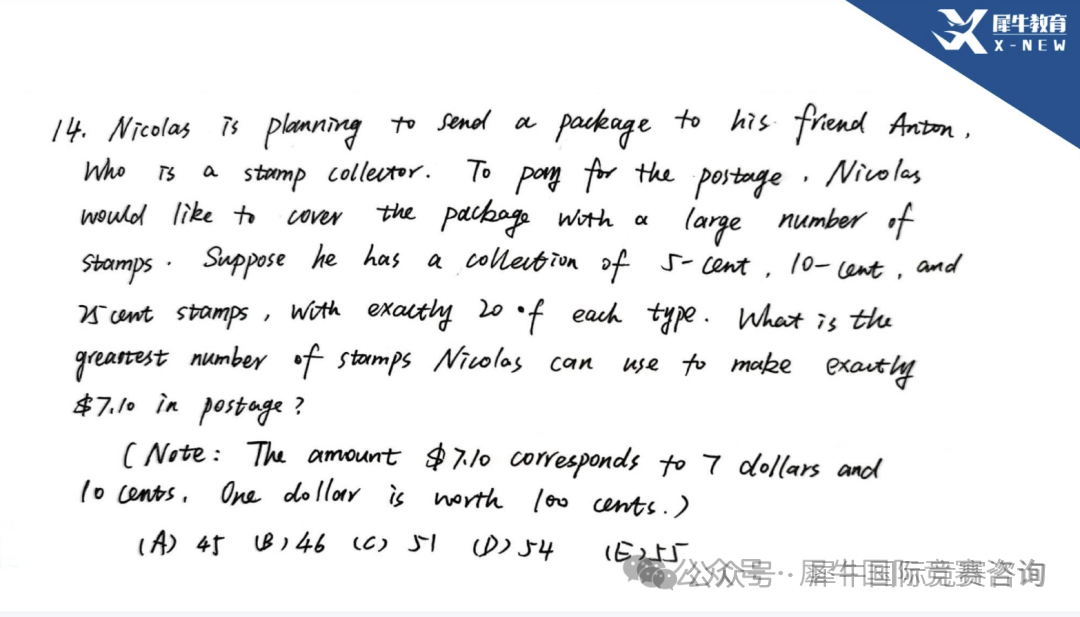 犀牛教育
X-NEW
14. Nicolas is planning to send a package to his friend Anton,
Who is a stamp collector. To pay for the postage, Nicolas
would like to cover the package with a large number of
stamps. Suppose he has a collection of 5-cent, 10-cent, and
25 cent stamps, with exactly 20 of each type. What is the
greatest number of stamps Nicolas can use to make exactly
$7.10 in postage?
(Note: The amount $7.10 corresponds to 7 dollars and
10 cents. One dollar is worth 100 cents.)
(A) 45 (B) 46 (C) 51 (D) 54 (E) 55
公众号·犀牛国际竞赛咨询